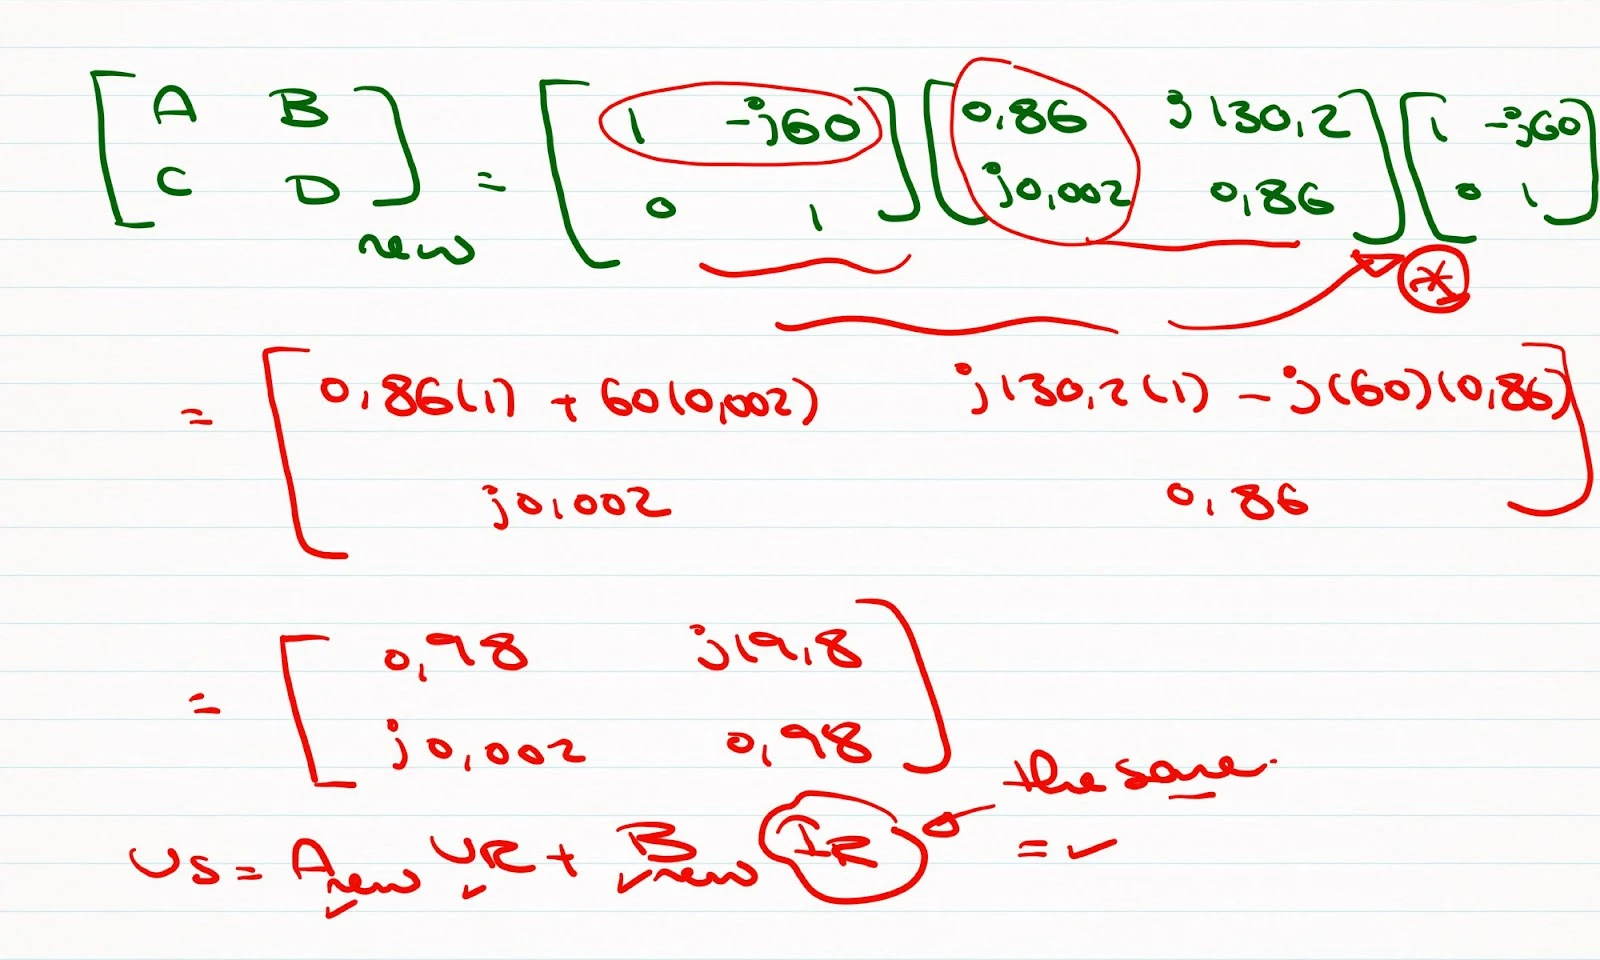 [A B; C D] new = [1 -j60; 0 1] [0,86 j130,2; j0,002 0,86] [1 -j60; 0 1]
*
= [0,86(1) + 60(0,002) j130,2(1) - j(60)(0,86); j0,002 0,86]
= [0,98 j19,8; j0,002 0,98]
the same.
Us = Anew UR + Bnew IR = ✓